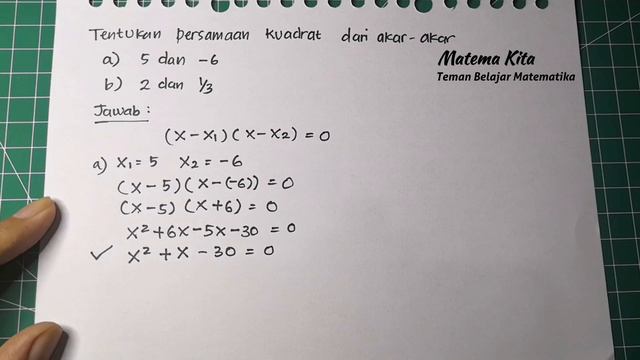 Tentukan persamaan kuadrat dari akar-akar
a) 5 dan -6
b) 2 dan 1/3
Jawab:
(x-x₁)(x-x₂)=0
a) x₁=5 x₂=-6
(x-5)(x-(-6))=0
(x-5)(x+6)=0
x²+6x-5x-30=0
✓ x²+x-30=0
Matema Kita
Teman Belajar Matematika